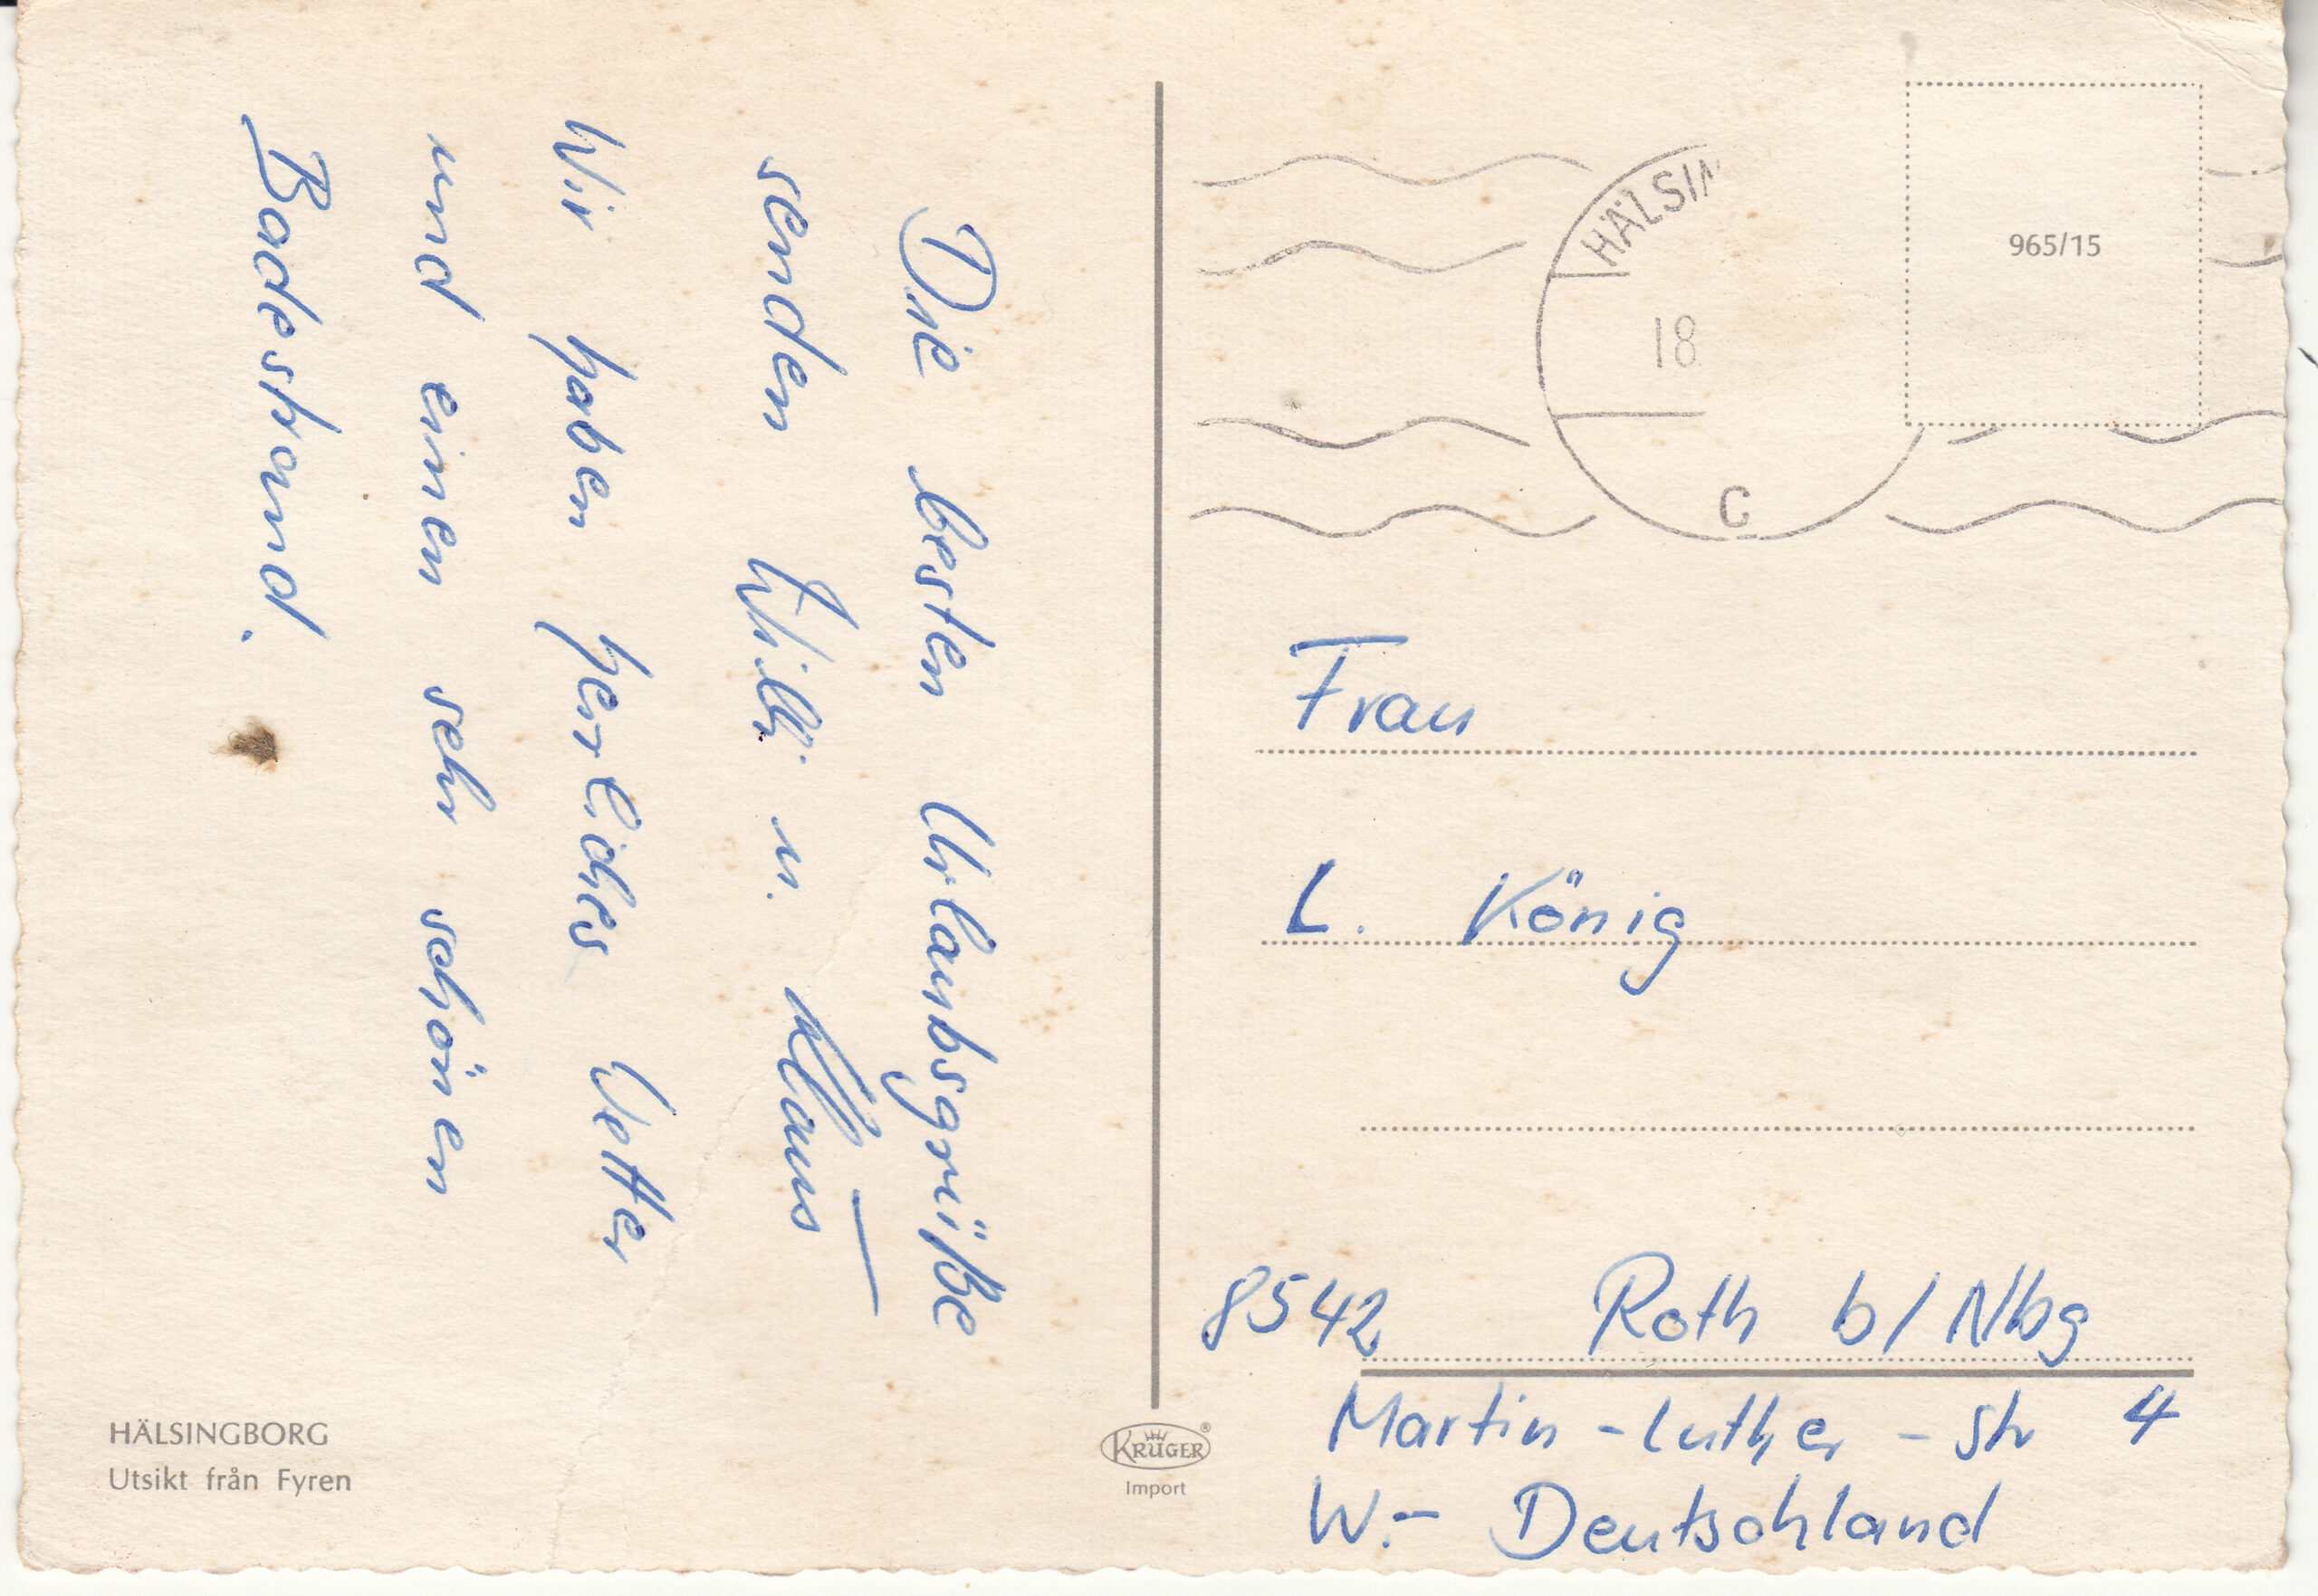 Die besten Urlaubsgrüße
senden Willi u. Klaus
Wir haben herrliches Wetter
und einen sehr schönen
Badestrand.
HÄLSINGBORG
Utsikt från Fyren
KRÜGER
Import
965/15
HÄLSIN
18
C
Frau
L. König
8542 Roth b/Nbg
Martin-Luther-Str 4
W.- Deutschland